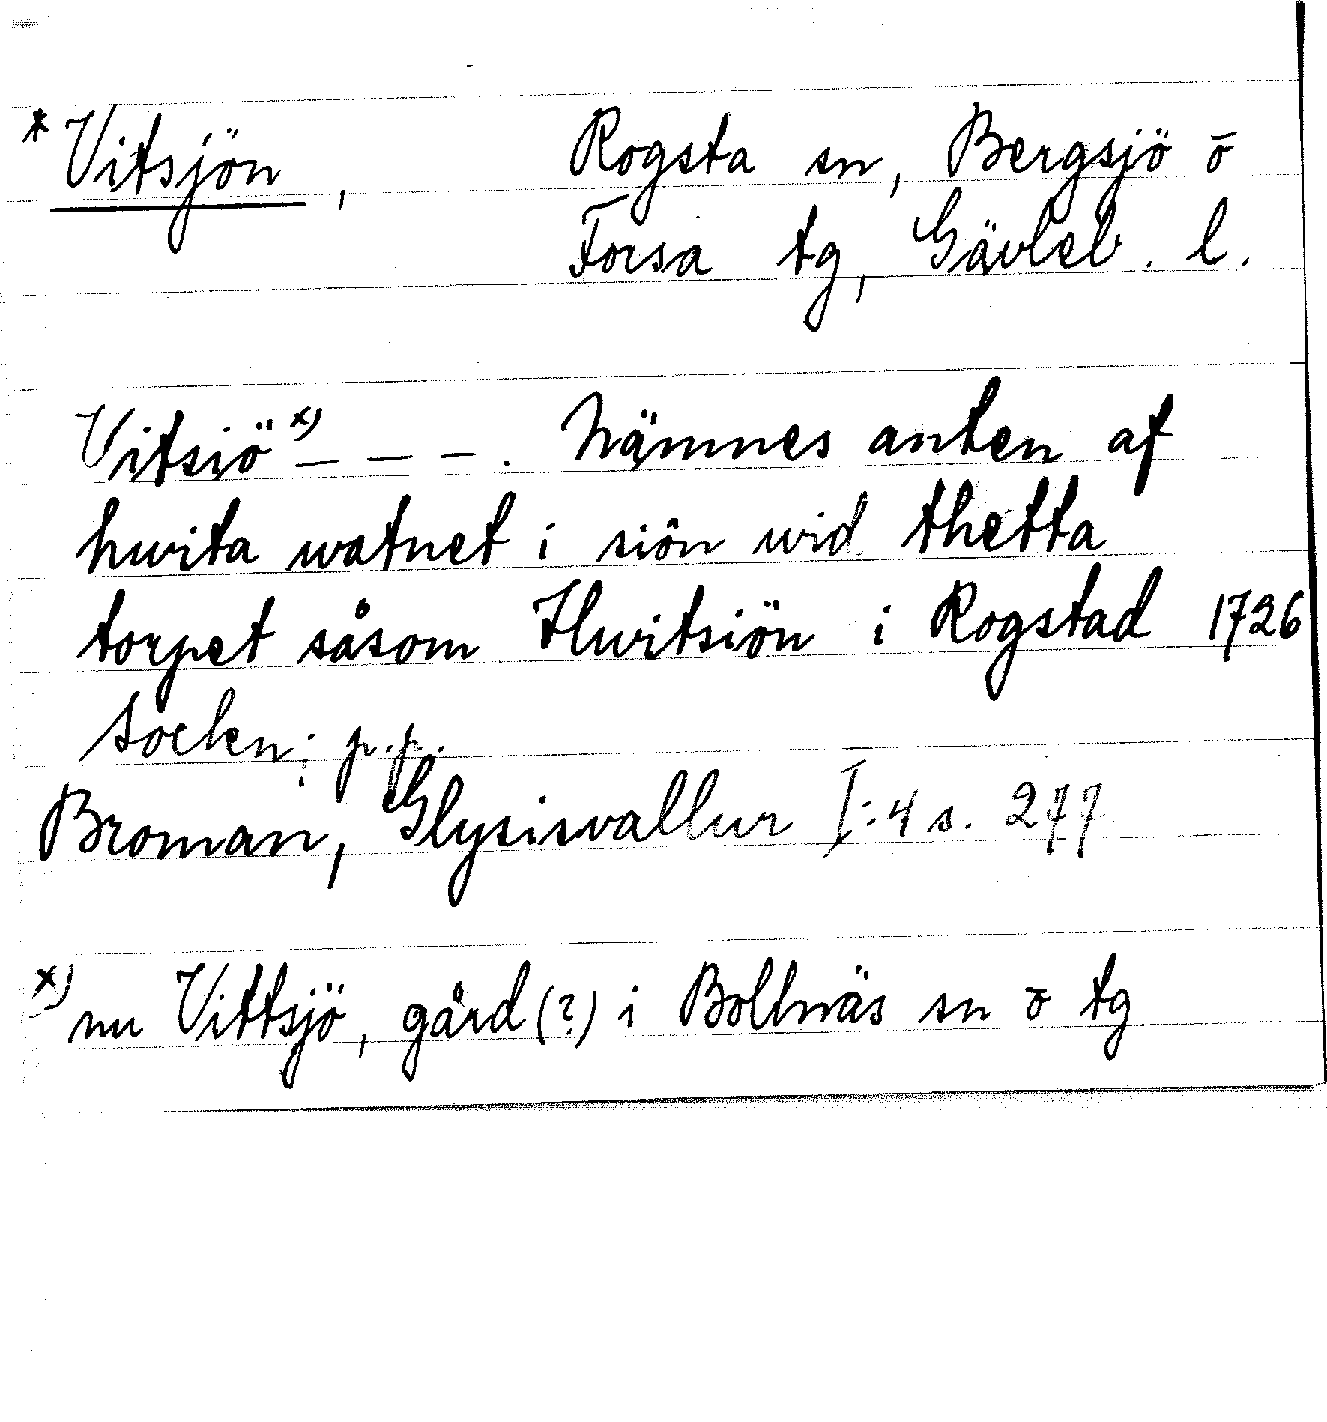 * Vitsjön, Rogsta sn, Bergsjö o
Forsa tg, Gävleb. l.
Vitsiö x) – – – . Nämnes anten af
hwita watnet i siön wid thetta
torpet såsom Hwitsiön i Rogstad 1726
soclen; p.p.
Broman, Glysisvallur I:4 s. 277
x) nu Vittsjö, gård (?) i Bollnäs sn o tg